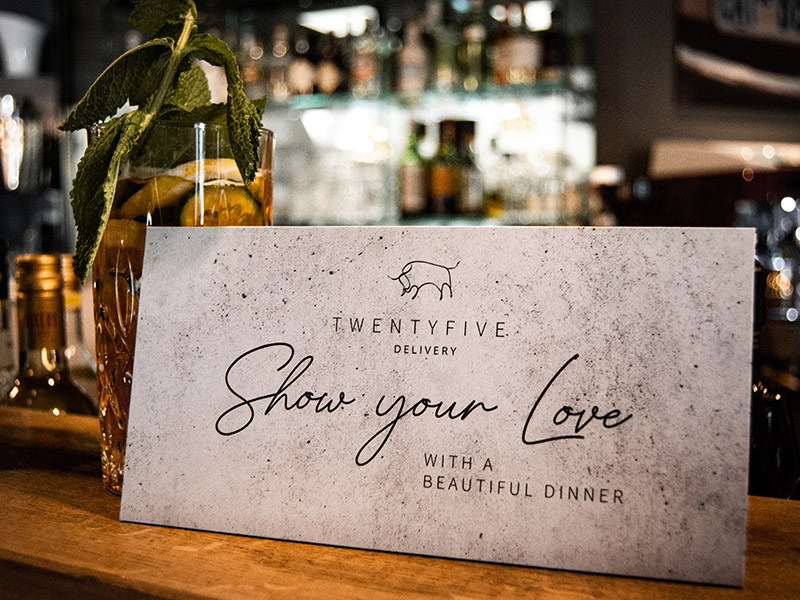 TWENTYFIVE
DELIVERY
Show your Love
WITH A
BEAUTIFUL DINNER